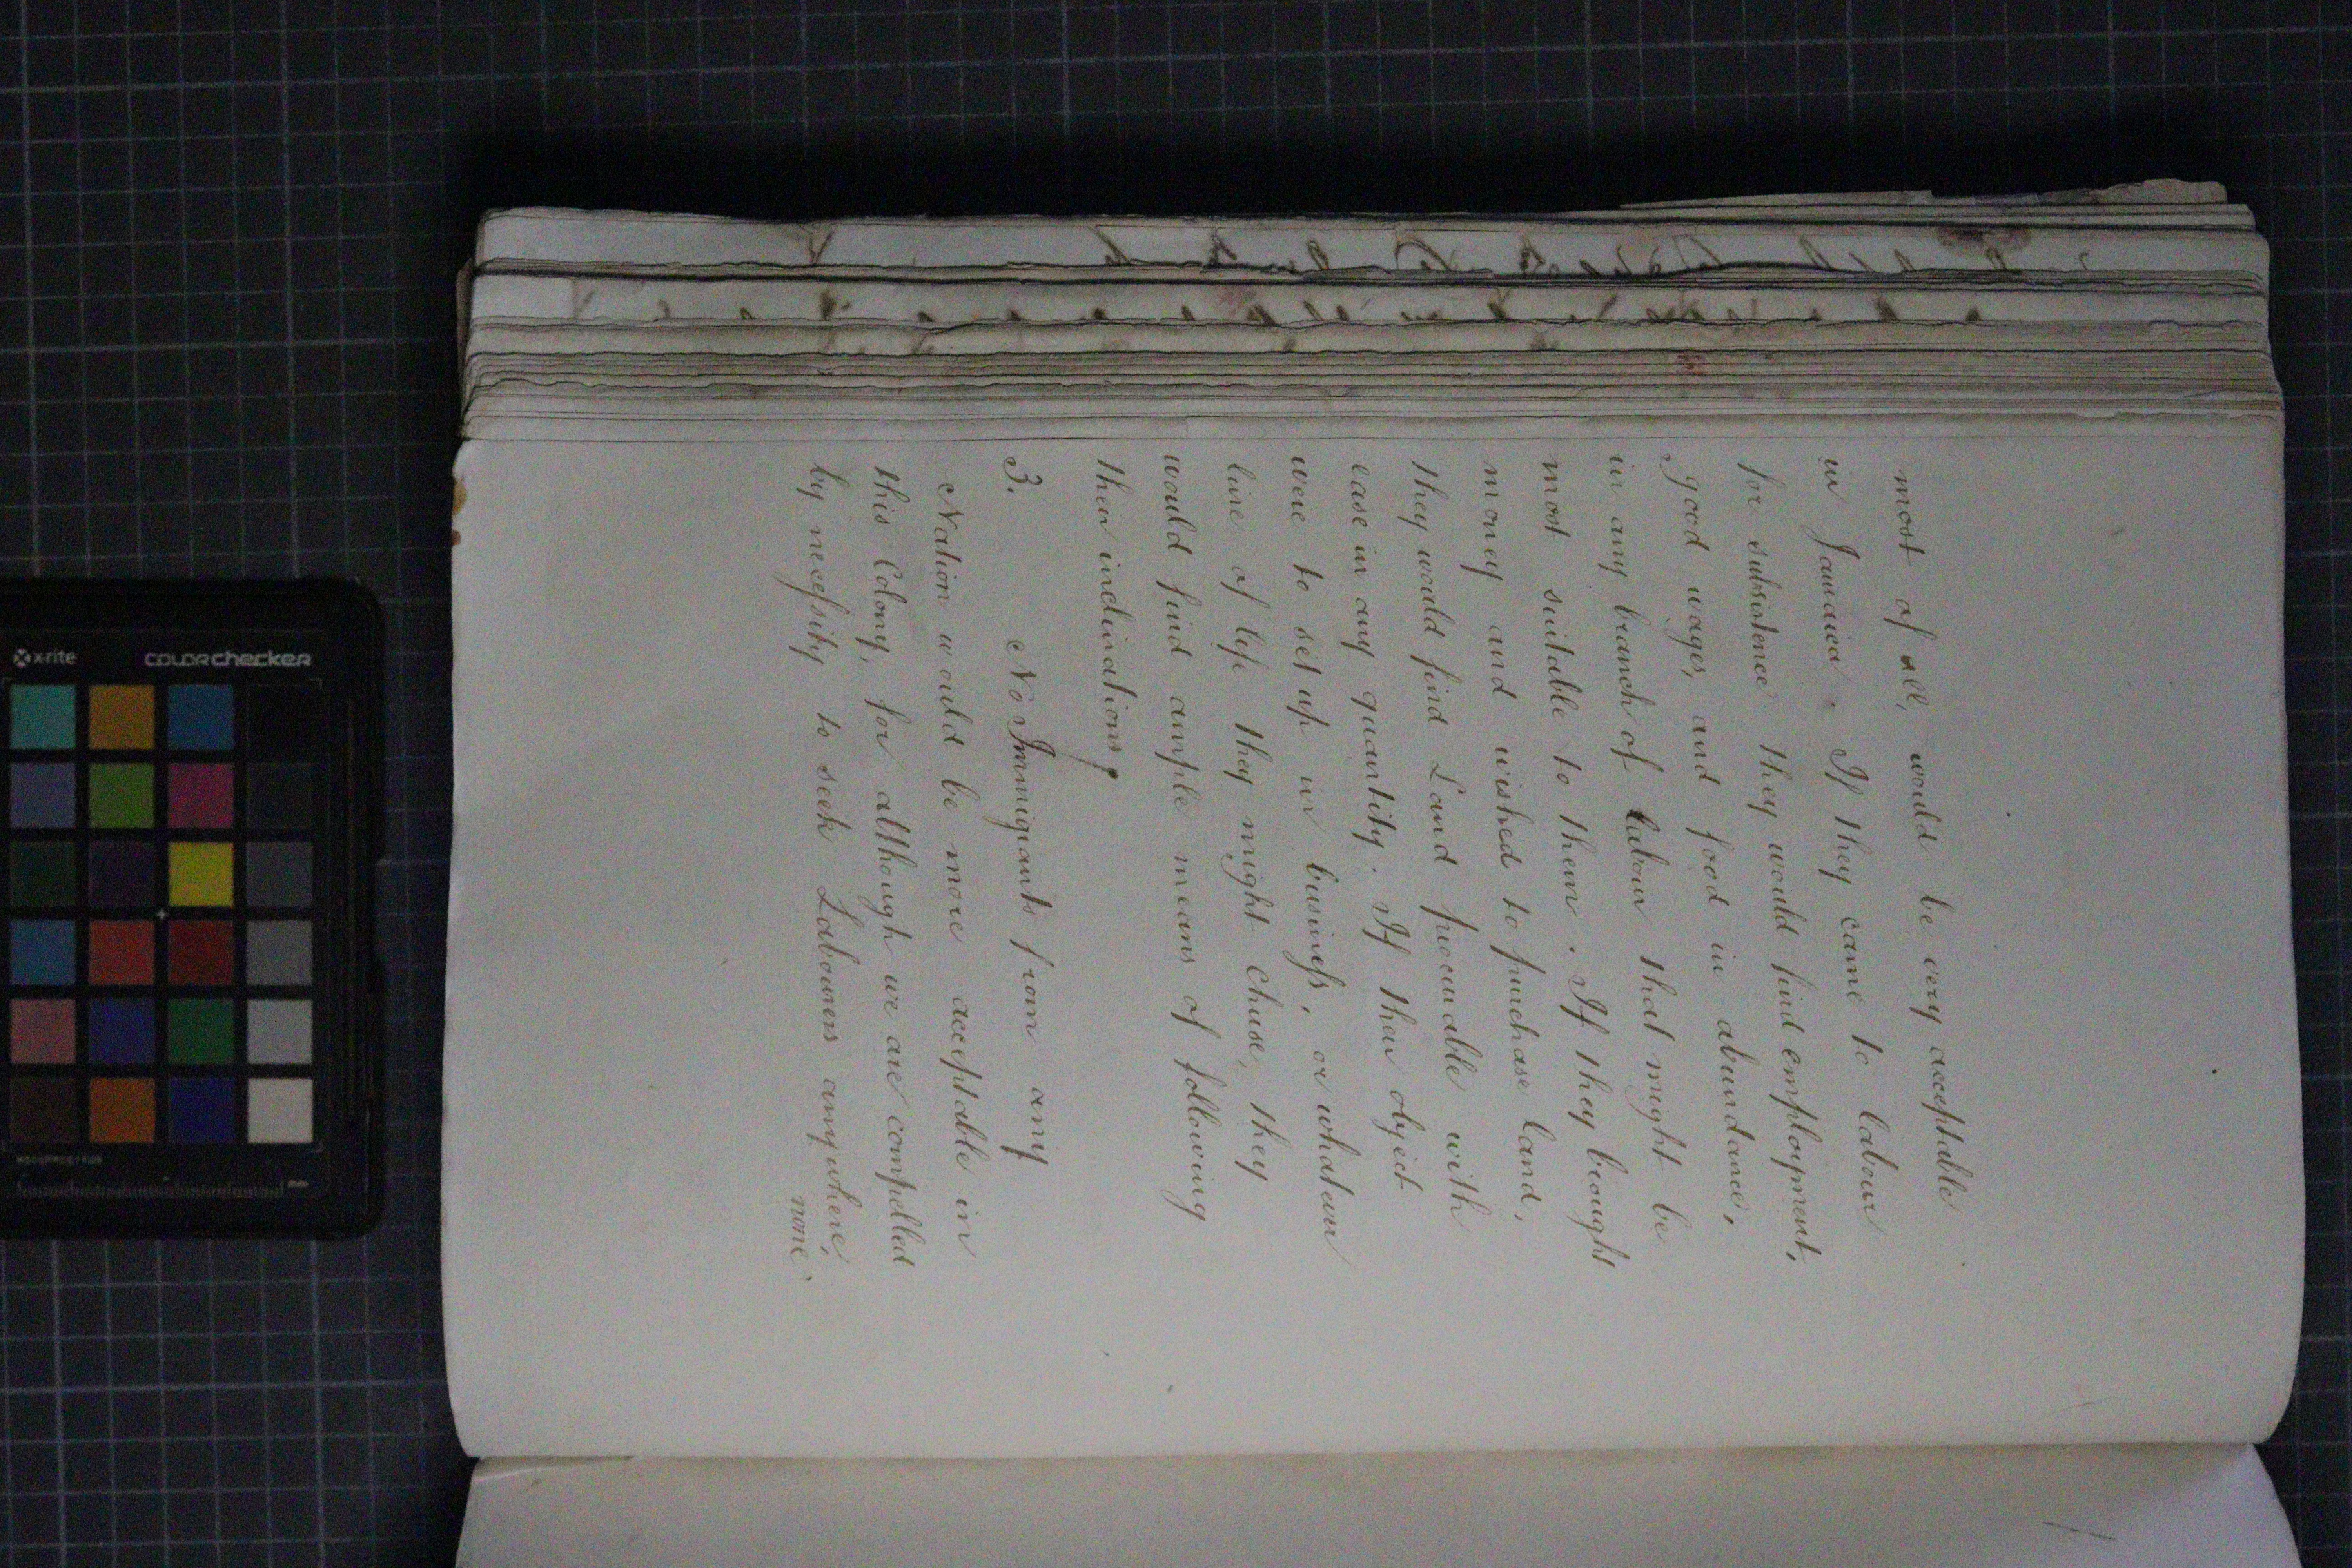 most of all, would be very acceptable
in Jamaica. If they came to labour
for subsistence they would find employment,
good wages, and food in abundance,
in any branch of labour that might be
most suitable to them. If they brought
money and wished to purchase land,
they would find Land procurable with
ease in any quantity. If their object
were to set up in business, or whatever
line of life they might chuse, they
would find ample means of following
their inclinations.
3. No Immigrants from any
Nation would be more acceptable in
this Colony, for although we are compelled
by necessity to seek Labourers anywhere,
none
x-rite
colorchecker